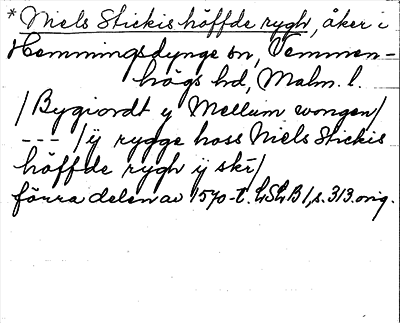 * Niels Stickis höffde rygh, åker i
Hemmingsdynge sn, Vemmen-
högs hd, Malm. l.
/Bygiordt y Mellum wongen/
--- /ÿ rygge hoss Niels Stickis
höffde rygh ÿ skr/
förra delen av 1570-t. LSLB 1, s. 313. orig.